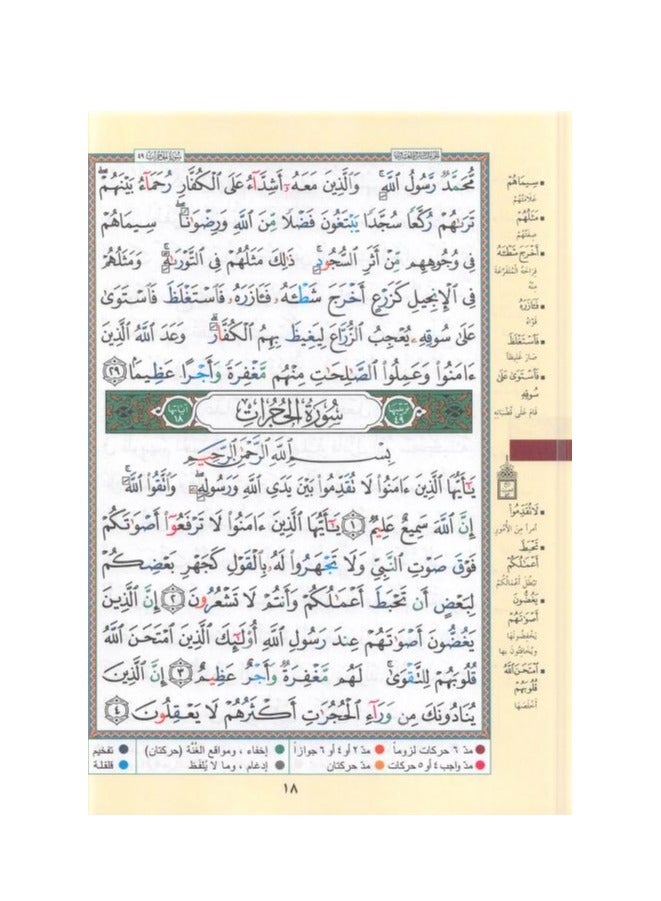 سورة الحجرات ٤٩
الجزء السادس والعشرون
مُّحَمَّدٌ رَّسُولُ ٱللَّهِ ۚ وَٱلَّذِينَ مَعَهُۥٓ أَشِدَّآءُ عَلَى ٱلْكُفَّارِ رُحَمَآءُ بَيْنَهُمْ ۖ
تَرَىٰهُمْ رُكَّعًا سُجَّدًا يَبْتَغُونَ فَضْلًا مِّنَ ٱللَّهِ وَرِضْوَٰنًا ۖ سِيمَاهُمْ
فِى وُجُوهِهِم مِّنْ أَثَرِ ٱلسُّجُودِ ۚ ذَٰلِكَ مَثَلُهُمْ فِى ٱلتَّوْرَىٰةِ ۚ وَمَثَلُهُمْ
فِى ٱلْإِنجِيلِ كَزَرْعٍ أَخْرَجَ شَطْـَٔهُۥ فَـَٔازَرَهُۥ فَٱسْتَغْلَظَ فَٱسْتَوَىٰ
عَلَىٰ سُوقِهِۦ يُعْجِبُ ٱلزُّرَّاعَ لِيَغِيظَ بِهِمُ ٱلْكُفَّارَ ۗ وَعَدَ ٱللَّهُ ٱلَّذِينَ
ءَامَنُوا۟ وَعَمِلُوا۟ ٱلصَّٰلِحَٰتِ مِنْهُم مَّغْفِرَةً وَأَجْرًا عَظِيمًۢا ٢٩
ترتيبها ٤٩ سُورَةُ الحُجُرَاتِ آياتها ١٨
بِسْمِ ٱللَّهِ ٱلرَّحْمَٰنِ ٱلرَّحِيمِ
يَٰٓأَيُّهَا ٱلَّذِينَ ءَامَنُوا۟ لَا تُقَدِّمُوا۟ بَيْنَ يَدَىِ ٱللَّهِ وَرَسُولِهِۦ ۖ وَٱتَّقُوا۟ ٱللَّهَ ۚ
إِنَّ ٱللَّهَ سَمِيعٌ عَلِيمٌ ١ يَٰٓأَيُّهَا ٱلَّذِينَ ءَامَنُوا۟ لَا تَرْفَعُوٓا۟ أَصْوَٰتَكُمْ
فَوْقَ صَوْتِ ٱلنَّبِىِّ وَلَا تَجْهَرُوا۟ لَهُۥ بِٱلْقَوْلِ كَجَهْرِ بَعْضِكُمْ
لِبَعْضٍ أَن تَحْبَطَ أَعْمَٰلُكُمْ وَأَنتُمْ لَا تَشْعُرُونَ ٢ إِنَّ ٱلَّذِينَ
يَغُضُّونَ أَصْوَٰتَهُمْ عِندَ رَسُولِ ٱللَّهِ أُو۟لَٰٓئِكَ ٱلَّذِينَ ٱمْتَحَنَ ٱللَّهُ
قُلُوبَهُمْ لِلتَّقْوَىٰ ۚ لَهُم مَّغْفِرَةٌ وَأَجْرٌ عَظِيمٌ ٣ إِنَّ ٱلَّذِينَ
يُنَادُونَكَ مِن وَرَآءِ ٱلْحُجُرَٰتِ أَكْثَرُهُمْ لَا يَعْقِلُونَ ٤
سِيمَاهُمْ
عَلَامَتُهُمْ
مَثَلُهُمْ
صِفَتُهُمْ
أَخْرَجَ شَطْـَٔهُ
فِرَاخَهُ الْمُتَفَرِّعَةَ
مِنْهُ
فَـَٔازَرَهُ
قَوَّاهُ
فَاسْتَغْلَظَ
صَارَ غَلِيظًا
فَاسْتَوَىٰ عَلَىٰ
سُوقِهِ
قَامَ عَلَى قُضْبَانِهِ
لَا تُقَدِّمُوا
أمرا مِنَ الأُمُورِ
تَحْبَطَ
أَعْمَٰلُكُمْ
تبطل أعمالكم
يَغُضُّونَ
أَصْوَٰتَهُمْ
يَخْفِضُونَهَا
ويُخافِتُونَ بِهَا
امْتَحَنَ اللَّهُ
قُلُوبَهُمْ
أَخْلَصَهَا
مدّ ٦ حركات لزوماً مدّ ٢ أو ٤ أو ٦ جوازاً إخفاء ، ومواقع الغُنَّة (حركتان) تفخيم
مدّ واجب ٤ أو ٥ حركات مدّ حركتان إدغام ، وما لا يُلفَظ قلقلة
١٨